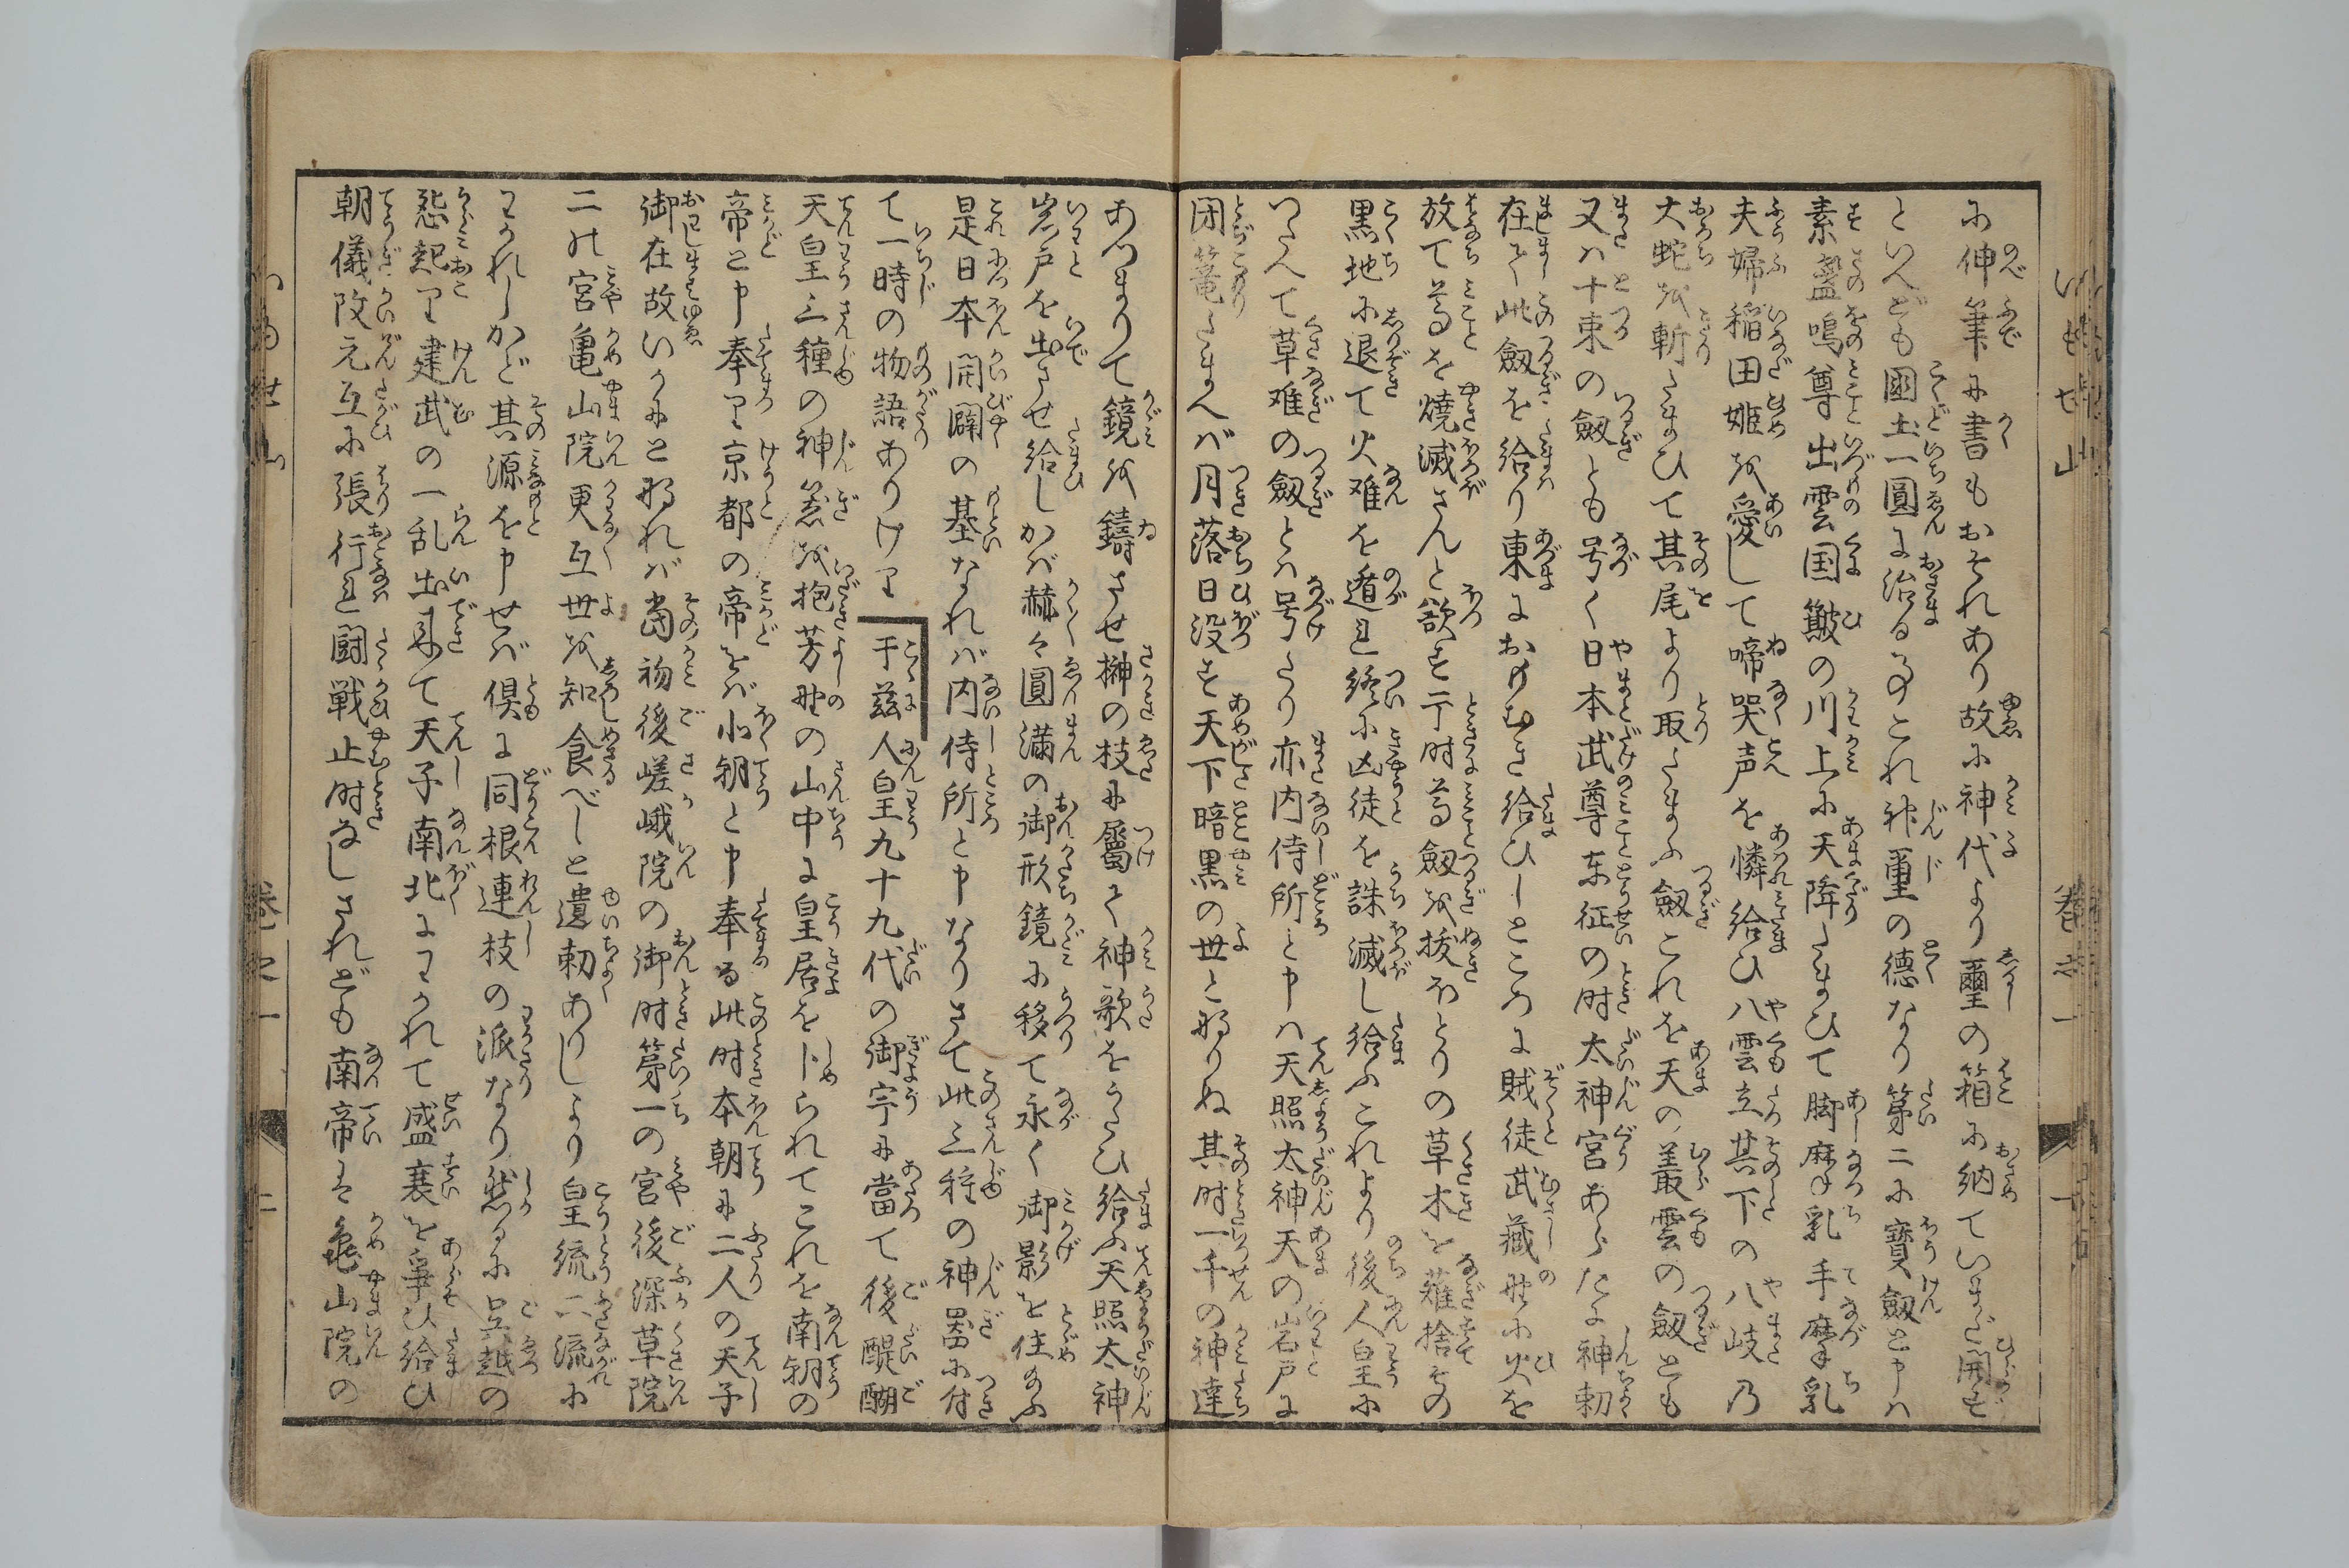 に伸筆に書もおそれあり故に神代より璽の箱に納ていまだ開ず
といへども國土一圓に治るのこれ神璽の徳なり第二に寶劔と申ハ
素盞嗚尊出雲国簸の川上に天降たまひて脚摩乳手摩乳
夫婦稲田姫を愛して啼哭声を憐給ひ八雲立其下の八岐乃
大蛇を斬たまひて其尾より取たまふ劔これを天の叢雲の劔とも
又ハ十束の劔とも号く日本武尊东征の时太神宮あらたに神勅
在て此劔を給り東におもむき給ひしところに賊徒武蔵野に火を
放て尊を焼滅さんと欲す于时尊劔を抜ほとりの草木を薙捨その
黒地に退て火难を遁れ終に凶徒を誅滅し給ふこれより後人皇に
つたへて草难の劔とハ号たり亦内侍所と申ハ天照太神天の岩戸に
閉篭たまへバ月落日没す天下暗黒の世と那りぬ其时一千の神達
あつまりて鏡を鑄させ榊の枝に屬て神歌をうたひ給ふ天照太神
岩戸を出させ給しかバ赫々圓満の御形鏡に移て永く御影を住め給ふ
是日本開闢の基なれバ内侍所と申なりさて此三種の神器に付
て一時の物語ありけり于茲人皇九十九代の御宇に當て後醍醐
天皇三種の神器を抱芳野の山中に皇居をト占られてこれを南朝の
帝と申奉り京都の帝をバ北朝と申奉る此时本朝に二人の天子
御在故いかにと那れバ當初後嵯峨院の御时第一の宮後深草院
二の宮亀山院更互世を知食べしと遺勅ありしより皇統二流に
わかれしかど其源を申せバ倶に同根連枝の派なり然るに呉越の
怨起り建武の一乱出来て天子南北にわかれて盛衰を爭ひ給ひ
朝儀改元互に張行れ闘戦止时なしされども南帝は亀山院の
いもせ山
巻之一
二